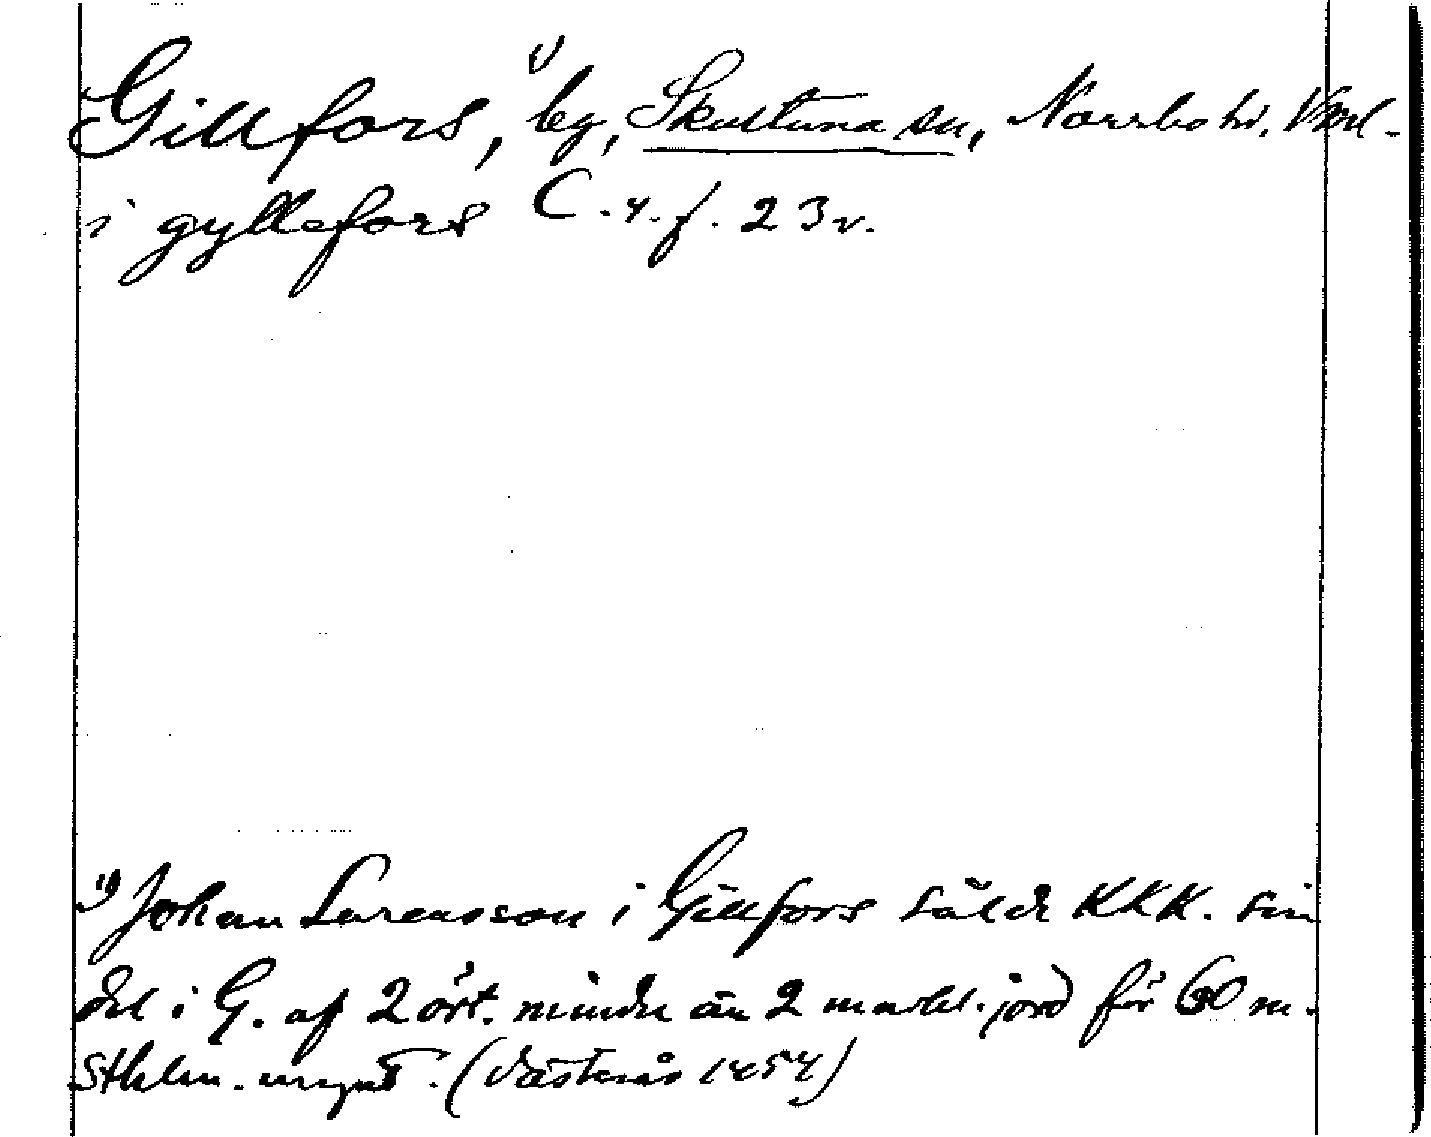 Gillfors,¹⁾ by, Skultuna sn, Norrbo hd, Vml.
i gyllefors C. 4. f. 23 v.
¹⁾ Johan Larensson i Gillfors sålde KKK. sin
del i G. af 2 ört. mindre än 2 markl. jord för 60 m.
Sthlm. mynt. (Västerås 1454)